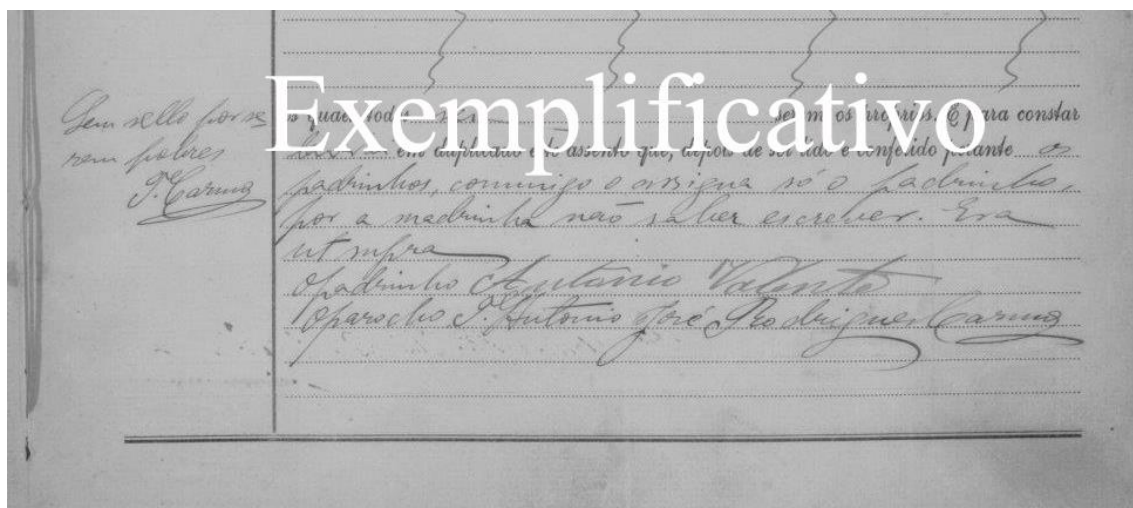 Exemplificativo
Sem sello por se=
rem pobres
P. Carmo
os quaes todos sei serem os proprios. E para constar
em duplicado este assento que, depois de ser lido e conferido perante os
padrinhos, commigo o assigna só o padrinho,
por a madrinha não saber escrever. Era
ut supra
O padrinho Antonio Valente
O parocho P. Antonio José Rodrigues Carmo